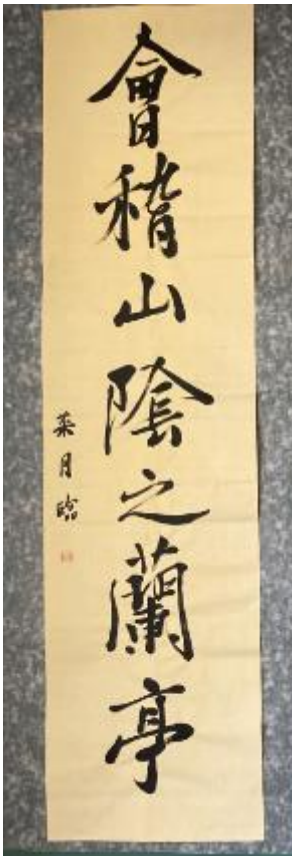 會稽山陰之蘭亭
葉月臨